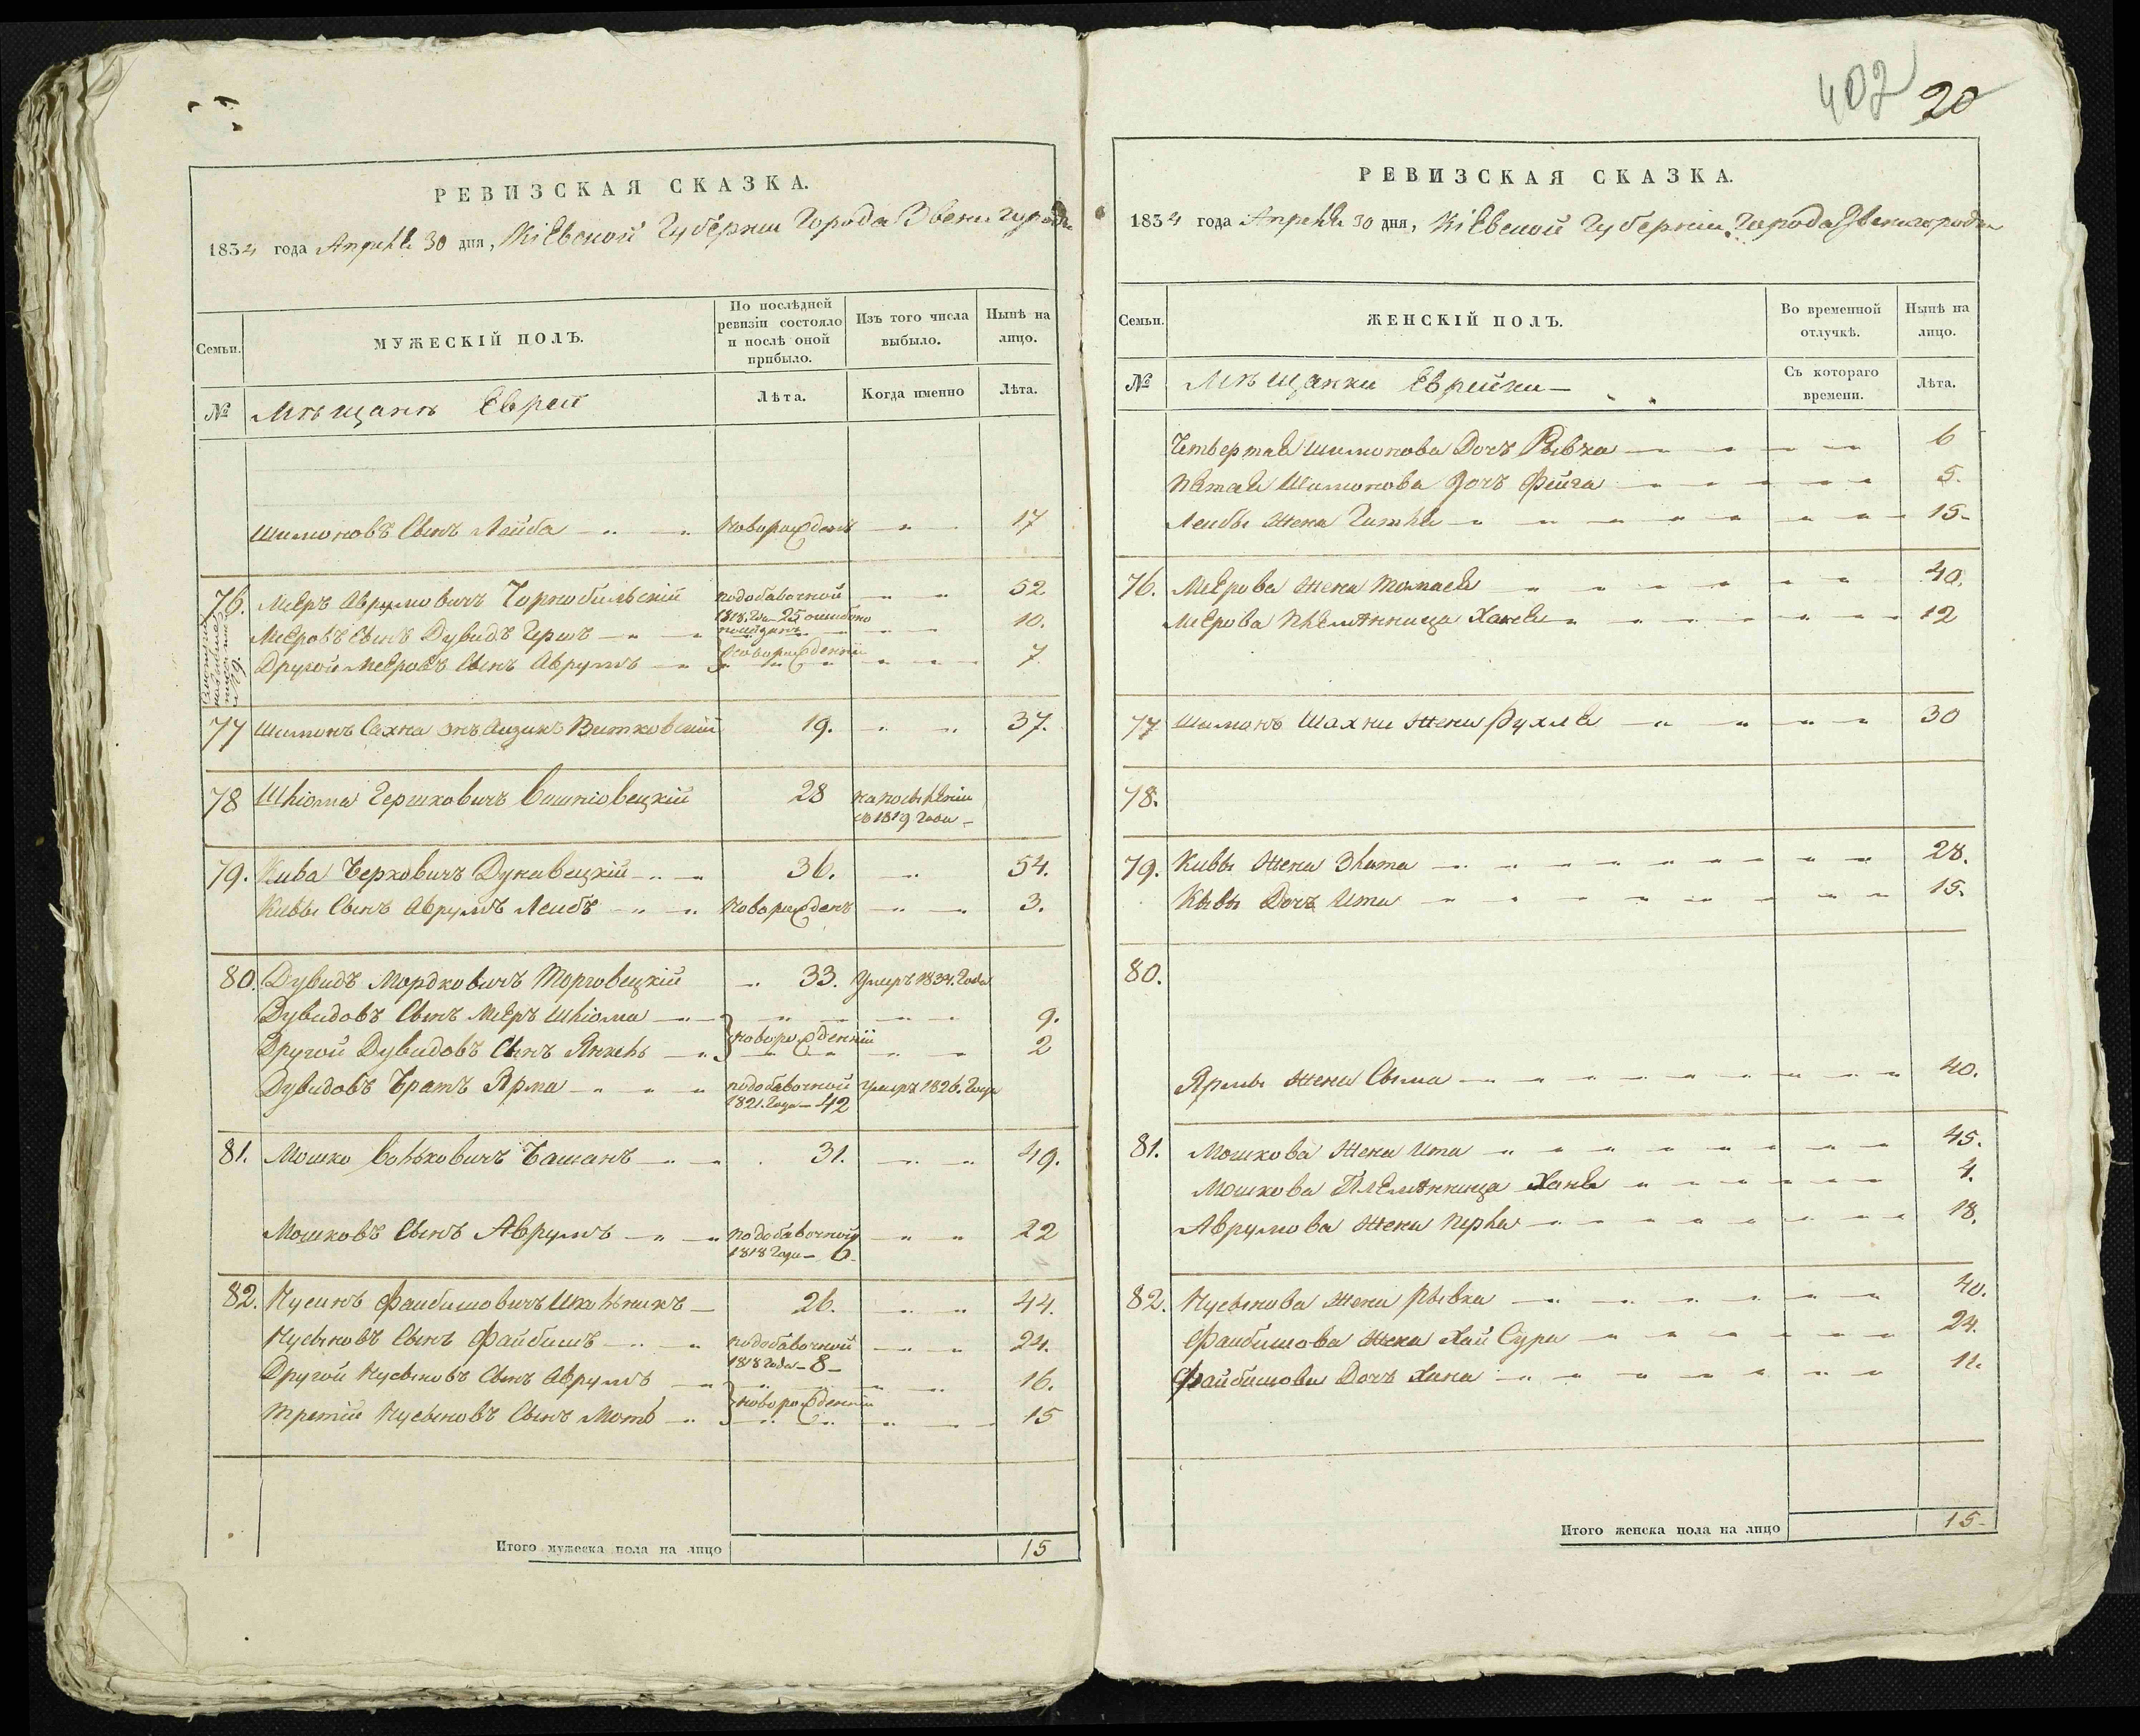 402 20
РЕВИЗСКАЯ СКАЗКА.
1834 года Апреля 30 дня, Кіевской Губерніи Города Звенигородки
Семьи.
МУЖЕСКІЙ ПОЛЪ.
По послѣдней ревизіи состояло и послѣ оной прибыло.
Изъ того числа выбыло.
Нынѣ на лицо.
№ Мѣщанъ Еврей
Лѣта.
Когда именно
Лѣта.
Шимоновъ Сынъ Лейба новорожденъ 17
76. Мееръ Аврумовичъ Чорнобильскій подобавочной 1818 Года 25 ошибкою 52
Меровъ Сынъ Дувидъ Гершъ 10.
Другой Меровъ Сынъ Аврумъ новорожденніи 7
77 Шимонъ Сахна онъ Аизикъ Витковскій 19. 37.
78 Шліома Гершковичъ Вашніовецкій 28 на поселеніи въ 1819 Года
79. Кива Берковичъ Дунавецкій 36. 54.
Кивы Сынъ Аврумъ Лейбъ новорожденъ 3.
80. Дувидъ Мордковичъ Торговецкій 33. Умеръ 1834. Года
Дувидовъ Сынъ Меръ Шліома 9.
Другой Дувидовъ Сынъ Янкель новорожденніи 2
Дувидовъ Братъ Ярма подобавочной 1821. Года 42 Умеръ 1826. Года
81. Мошко Волковичъ Башанъ 31. 49.
Мошковъ Сынъ Аврумъ подобавочной 1818 Года 6. 22
82. Нусинъ Файбишовичъ Школникъ 26. 44.
Нусыновъ Сынъ Файбишъ подобавочной 1818 Года 8 24.
Другой Нусыновъ Сынъ Аврумъ 16.
Третій Нусыновъ Сынъ Моть новорожденніи 15
Итого мужеска пола на лицо 15
РЕВИЗСКАЯ СКАЗКА.
1834 года Апреля 30 дня, Кіевской Губерніи, Города Звенигородки
Семьи.
ЖЕНСКІЙ ПОЛЪ.
Во временной отлучкѣ.
Нынѣ на лицо.
№ Мѣщанки Еврейки
Съ котораго времени.
Лѣта.
Четвертая Шимонова Дочъ Рывка 6
Пятая Шимонова Дочъ Фейга 5.
Лейбы Жена Гитля 15
76. Меерова Жена Томася 40.
Меерова Племѣнница Ханя 12
77 Шимонъ Шахни Жена Рухля 30
78.
79. Кивы Жена Злата 28.
Кивы Дочъ Ита 15.
80.
Ярмы Жена Сыма 40.
81. Мошкова Жена Ита 45.
Мошкова Племѣнница Ханя 4.
Аврумова Жена Перля 18.
82. Нусынова Жена Рывка 40.
Файбишова Жена Хай Сура 24.
Файбишова Дочъ Хана
Итого женска пола на лицо 15